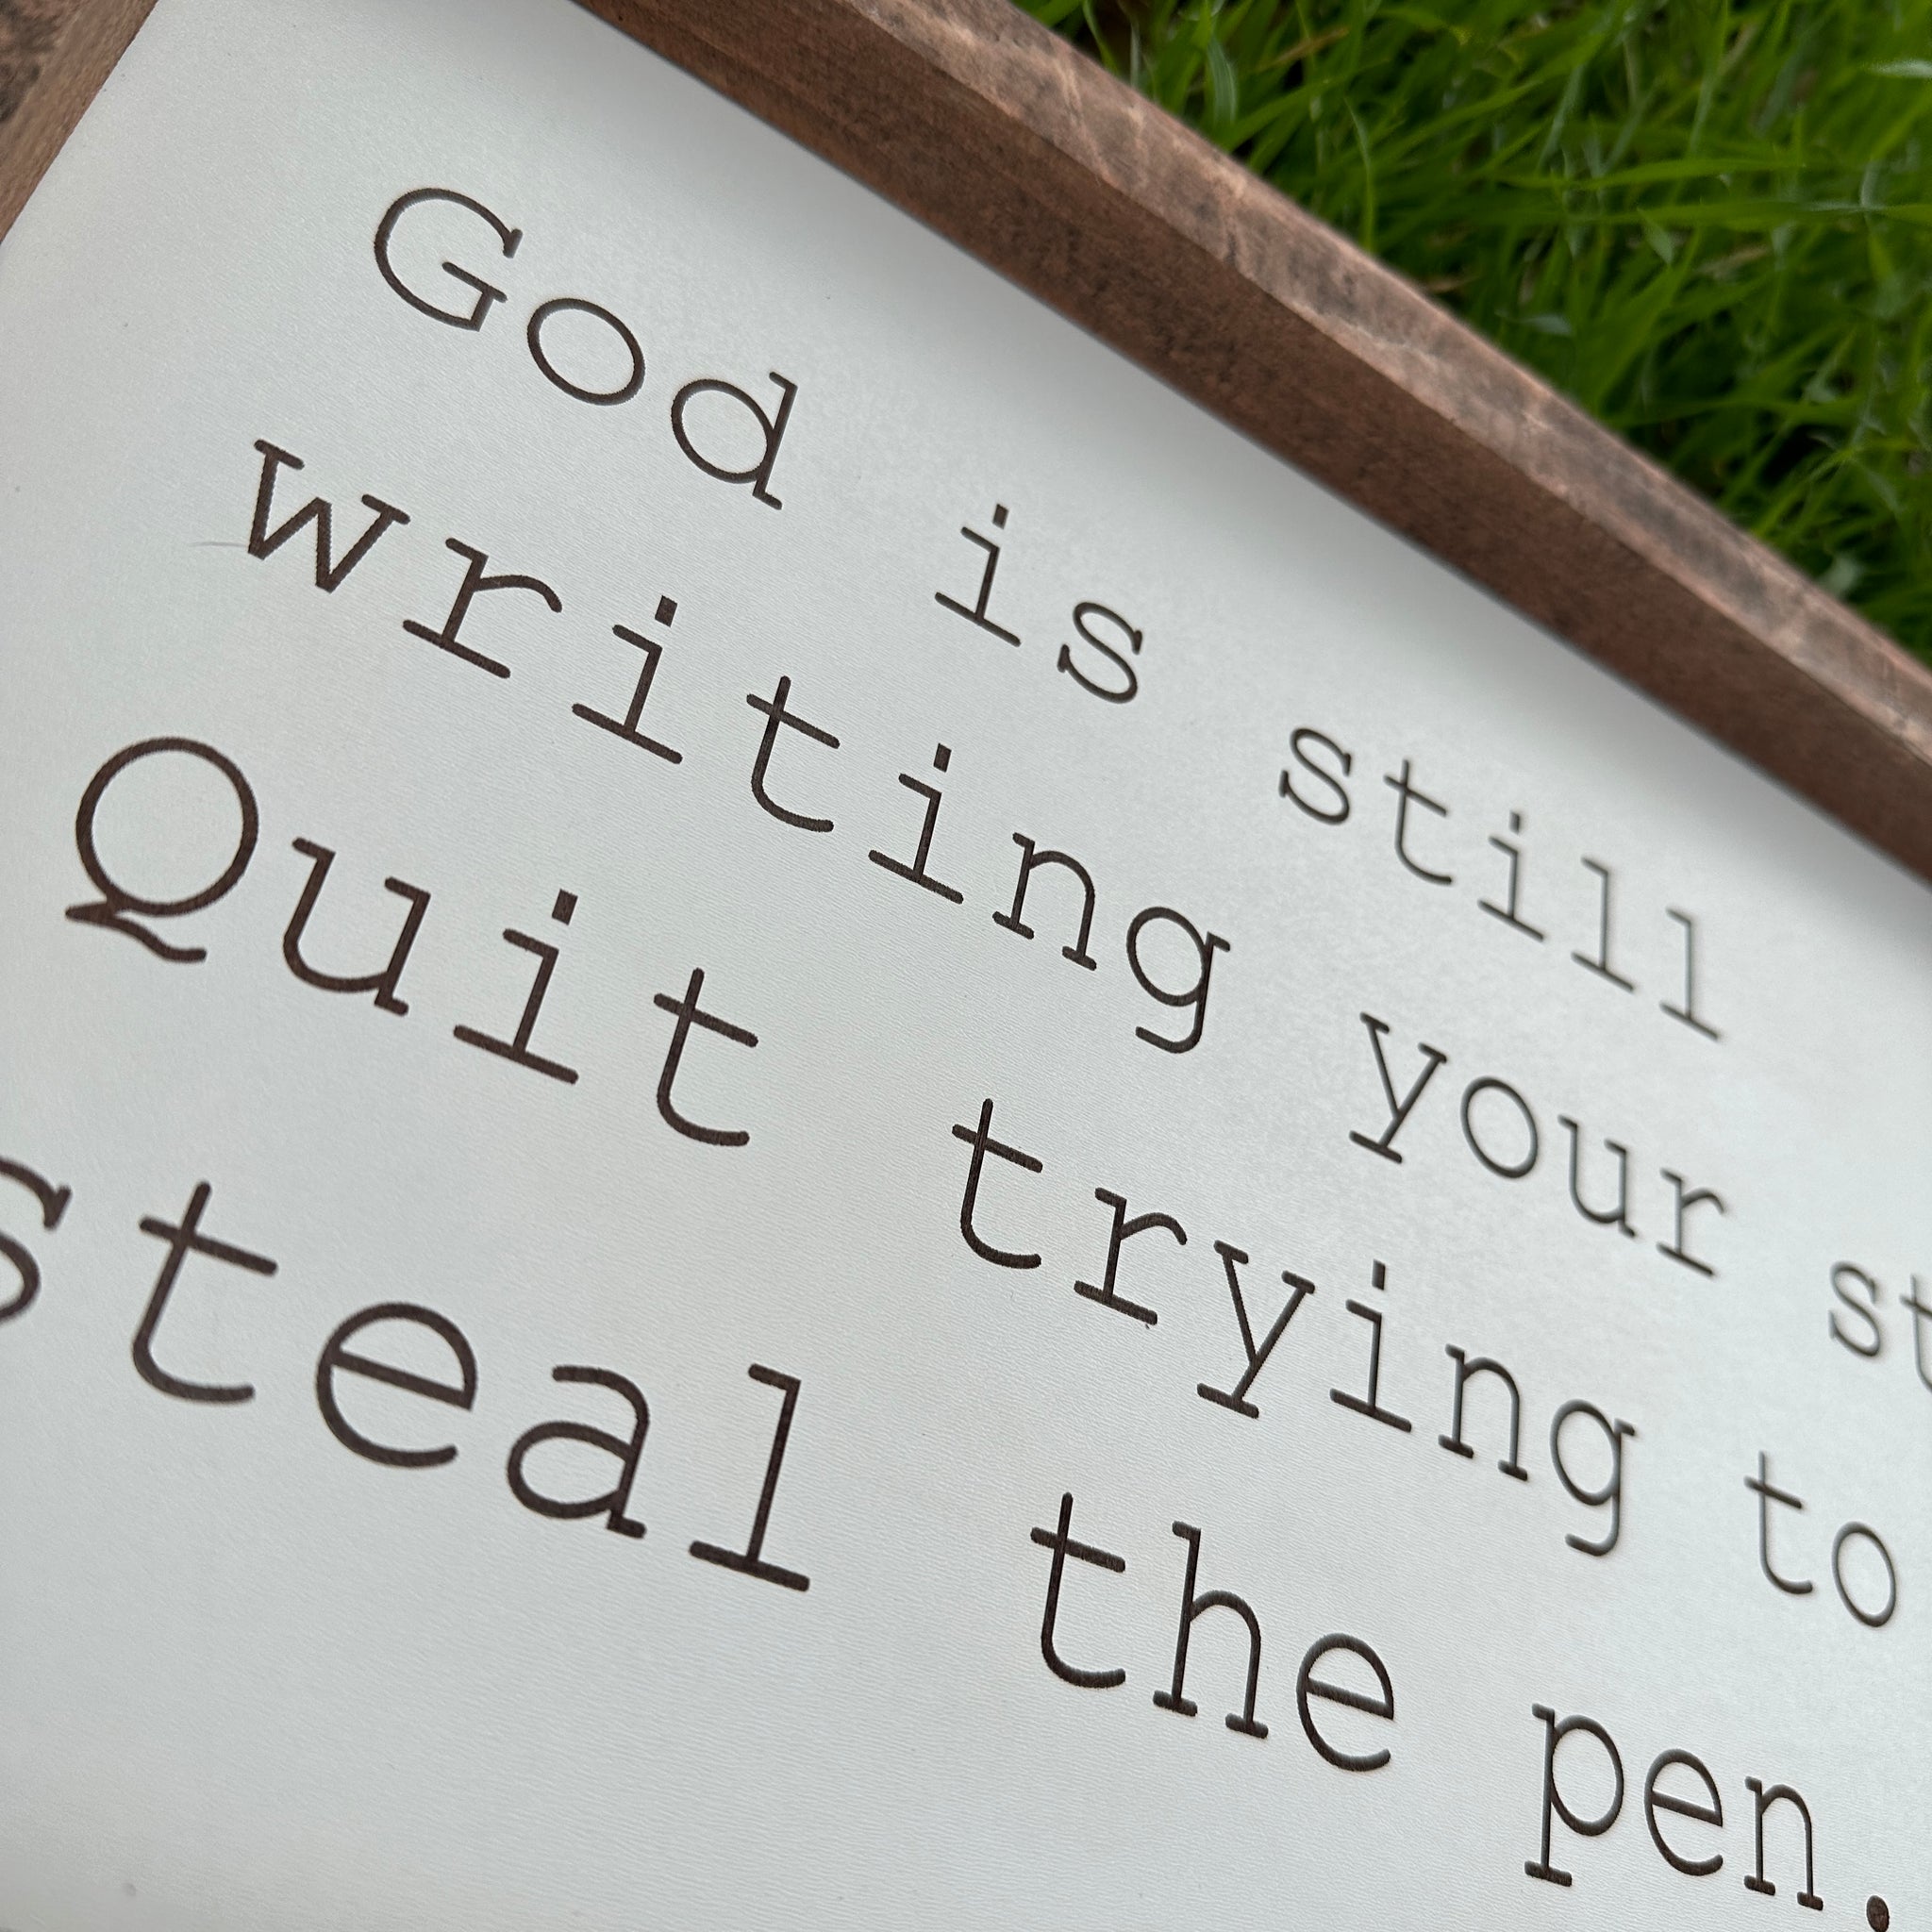 God is still
writing your
Quit trying to
steal the pen.